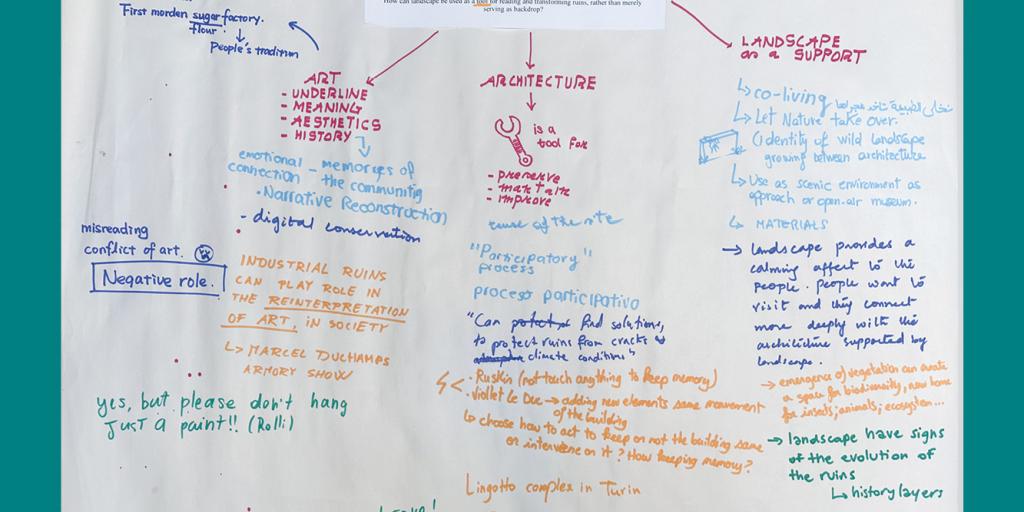 How can landscape be used as a tool for reading and transforming ruins, rather than merely
serving as backdrop?
First morden sugar factory.
flour.
People's tradition
ART
- UNDERLINE
- MEANING
- AESTHETICS
- HISTORY
emotional - memories of
connection - the communitig
. Narrative Reconstruction
- digital conservation
misreading
conflict of art.
Negative role.
INDUSTRIAL RUINS
CAN PLAY ROLE IN
THE REINTERPRETATION
OF ART, IN SOCIETY
↳ MARCEL DUCHAMPS
ARMORY SHOW
yes, but please don't hang
JUST A paint!! (Rolli)
ARCHITECTURE
is a
tool for
- preserve
- improve
of the site
"Participatory"
process
process participativo
"Can protect find solutions,
to protect ruins from cracks &
climate conditions"
. Ruskin (not touch anything to keep memory)
. Viollet Le Duc → adding new elements same movement
of the building
↳ choose how to act to keep or not the building same
or intervene on it? How keeping memory?
Lingotto complex in Turin
LANDSCAPE
as a SUPPORT
↳ co-living
↳ Let Nature take over.
(identity of wild landscape
growing between architecture
↳ Use as scenic environment as
approach or open-air museum.
↳ MATERIALS
→ landscape provides a
calming affect to the
people. people want to
visit and they connect
more deeply with the
architecture supported by
landscape.
→ emergence of vegetation can create
a space for biodiversity, new home
for insects, animals, ecosystem...
→ landscape have signs
of the evolution of
the ruins
↳ history layers